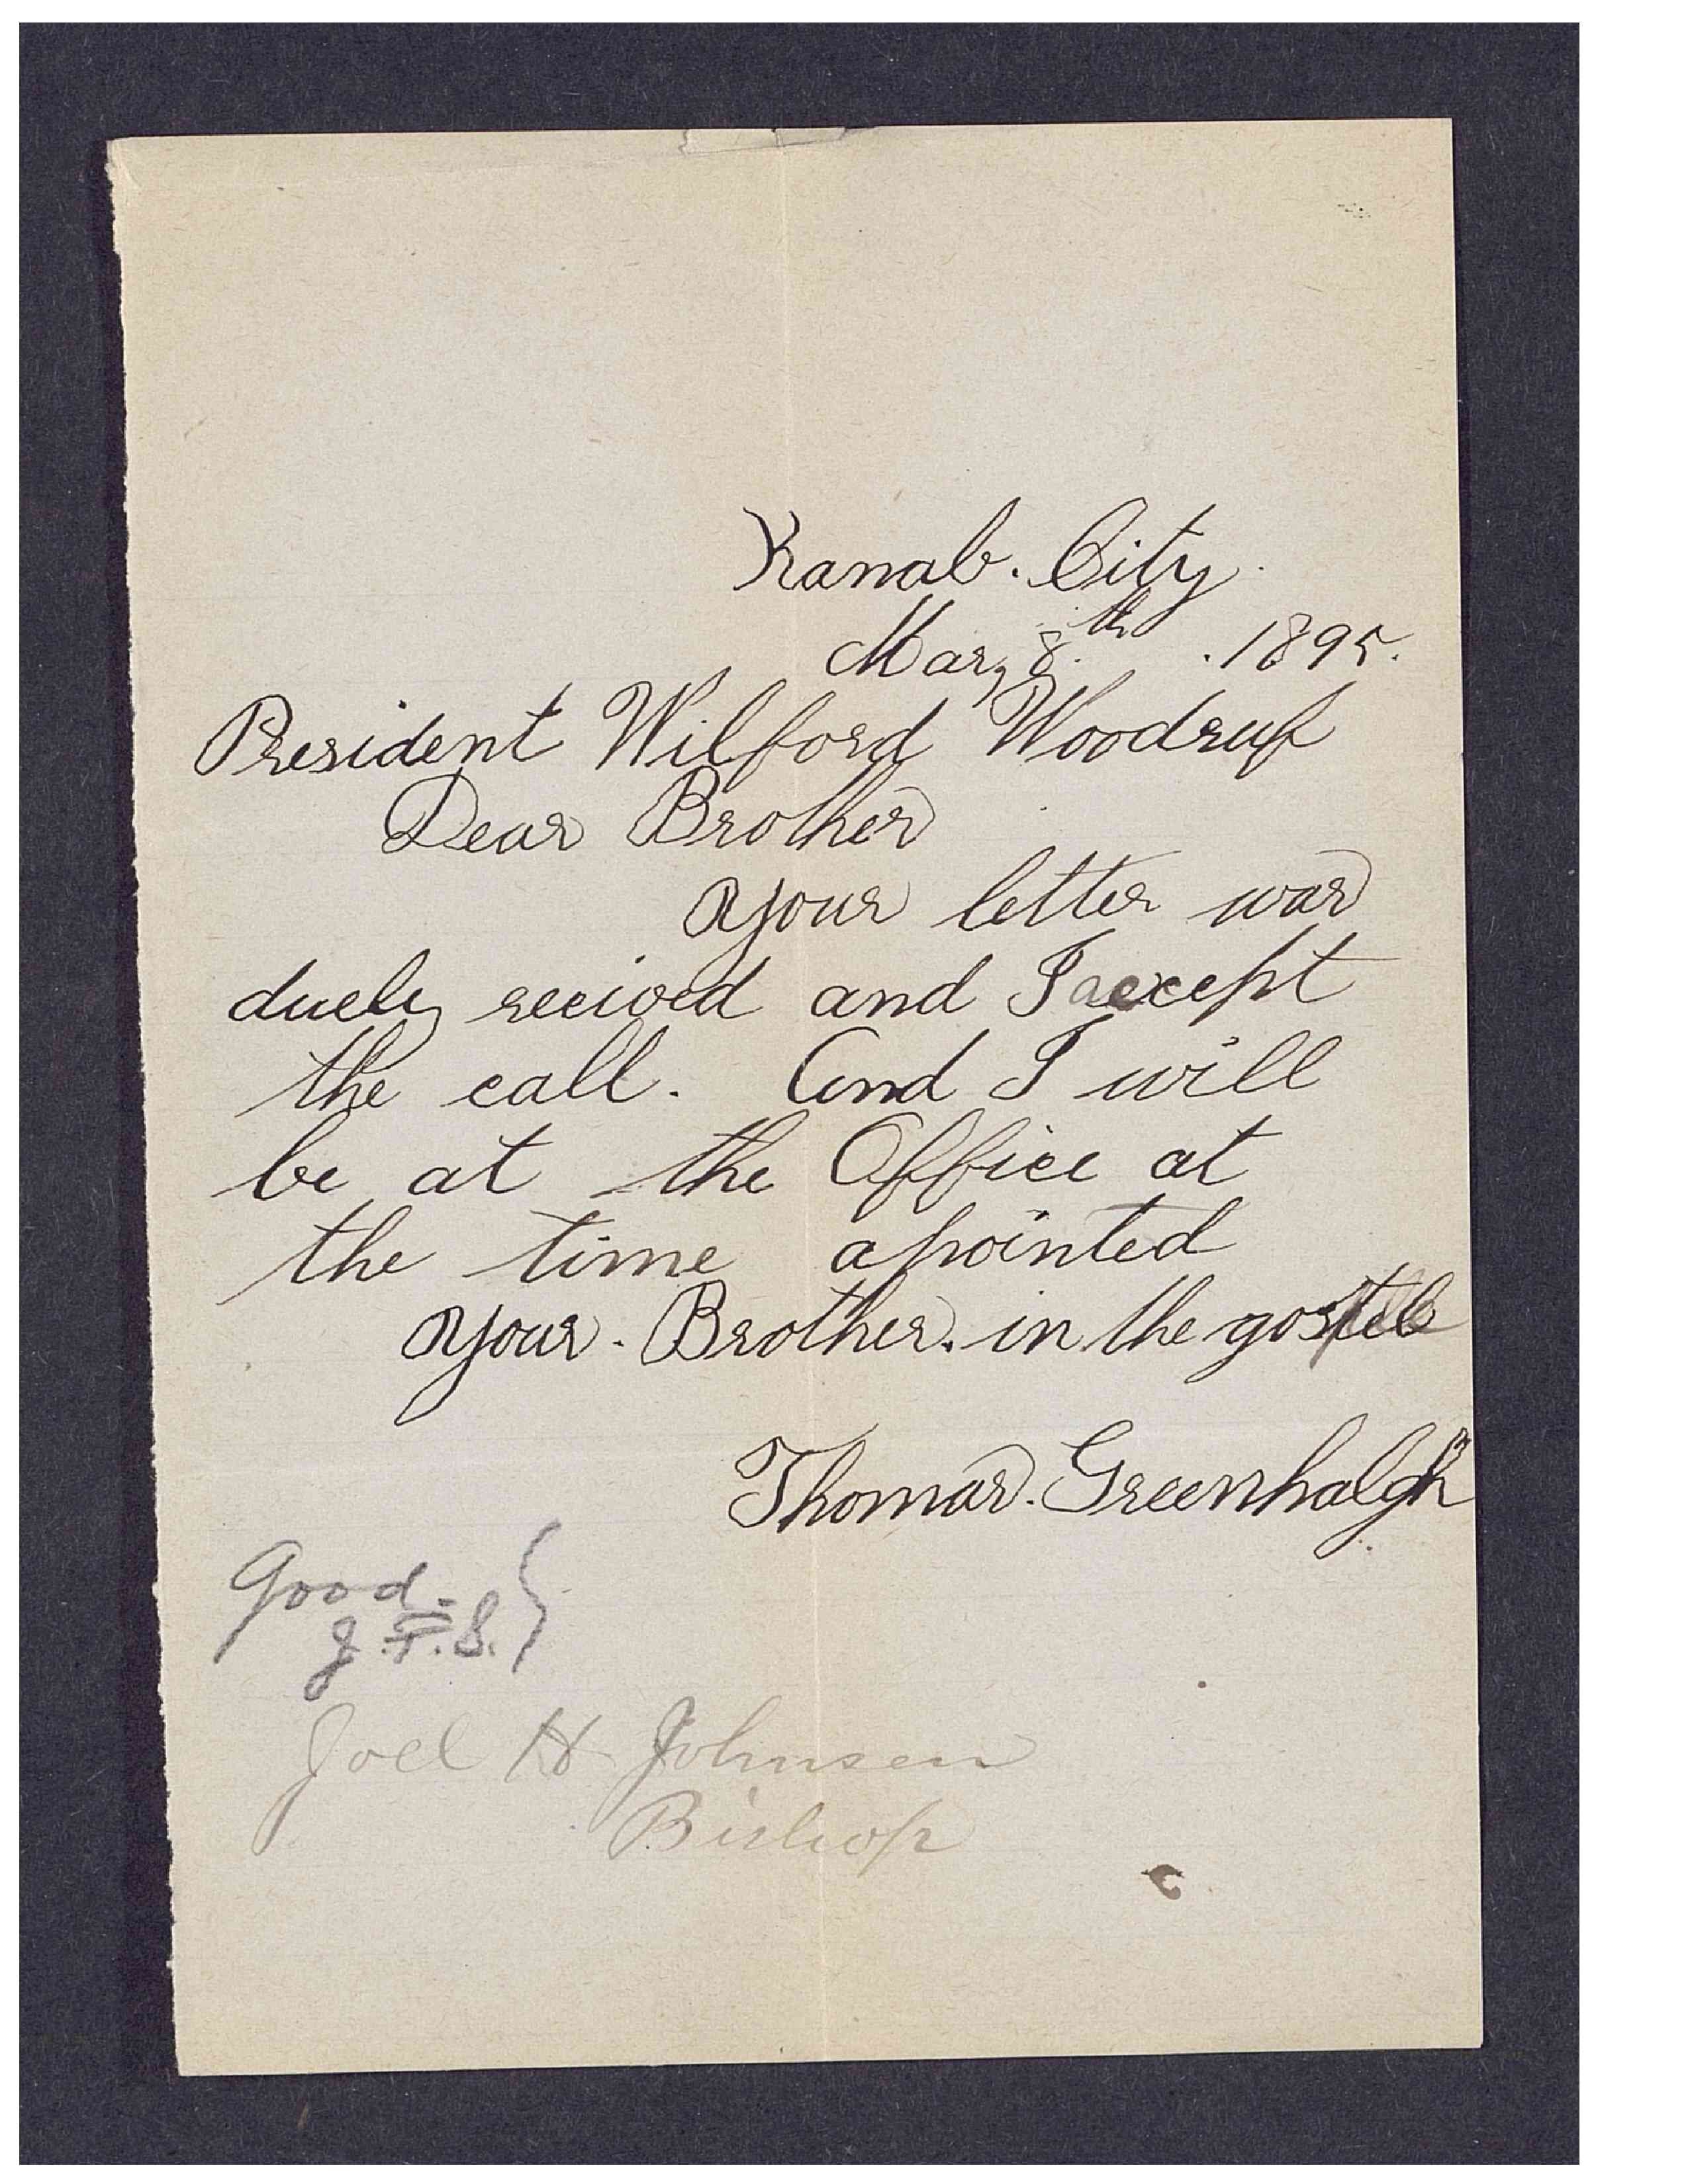 Kanab. City.
Mar, 8.th .1895.
President Wilford Woodruf
Dear Brother
Your letter was
duely recived and I except
the call. And I will
be at the Office at
the time apointed
Your. Brother. in the gospel
Thomas. Greenhalgh
Good-
J.F.S.
Joel H Johnsen
Bishop